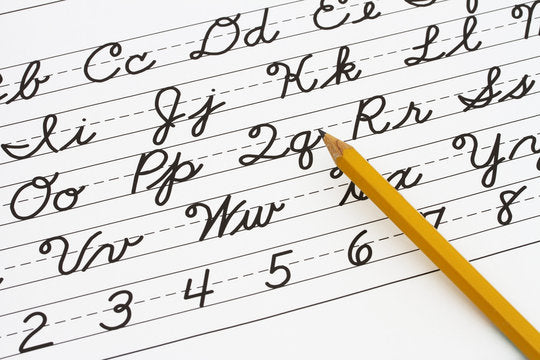 Bb Cc Dd Ee
Ii Jj Kk Ll
Oo Pp Qq Rr Ss
Vv Ww Xx Yy
2 3 4 5 6 7 8